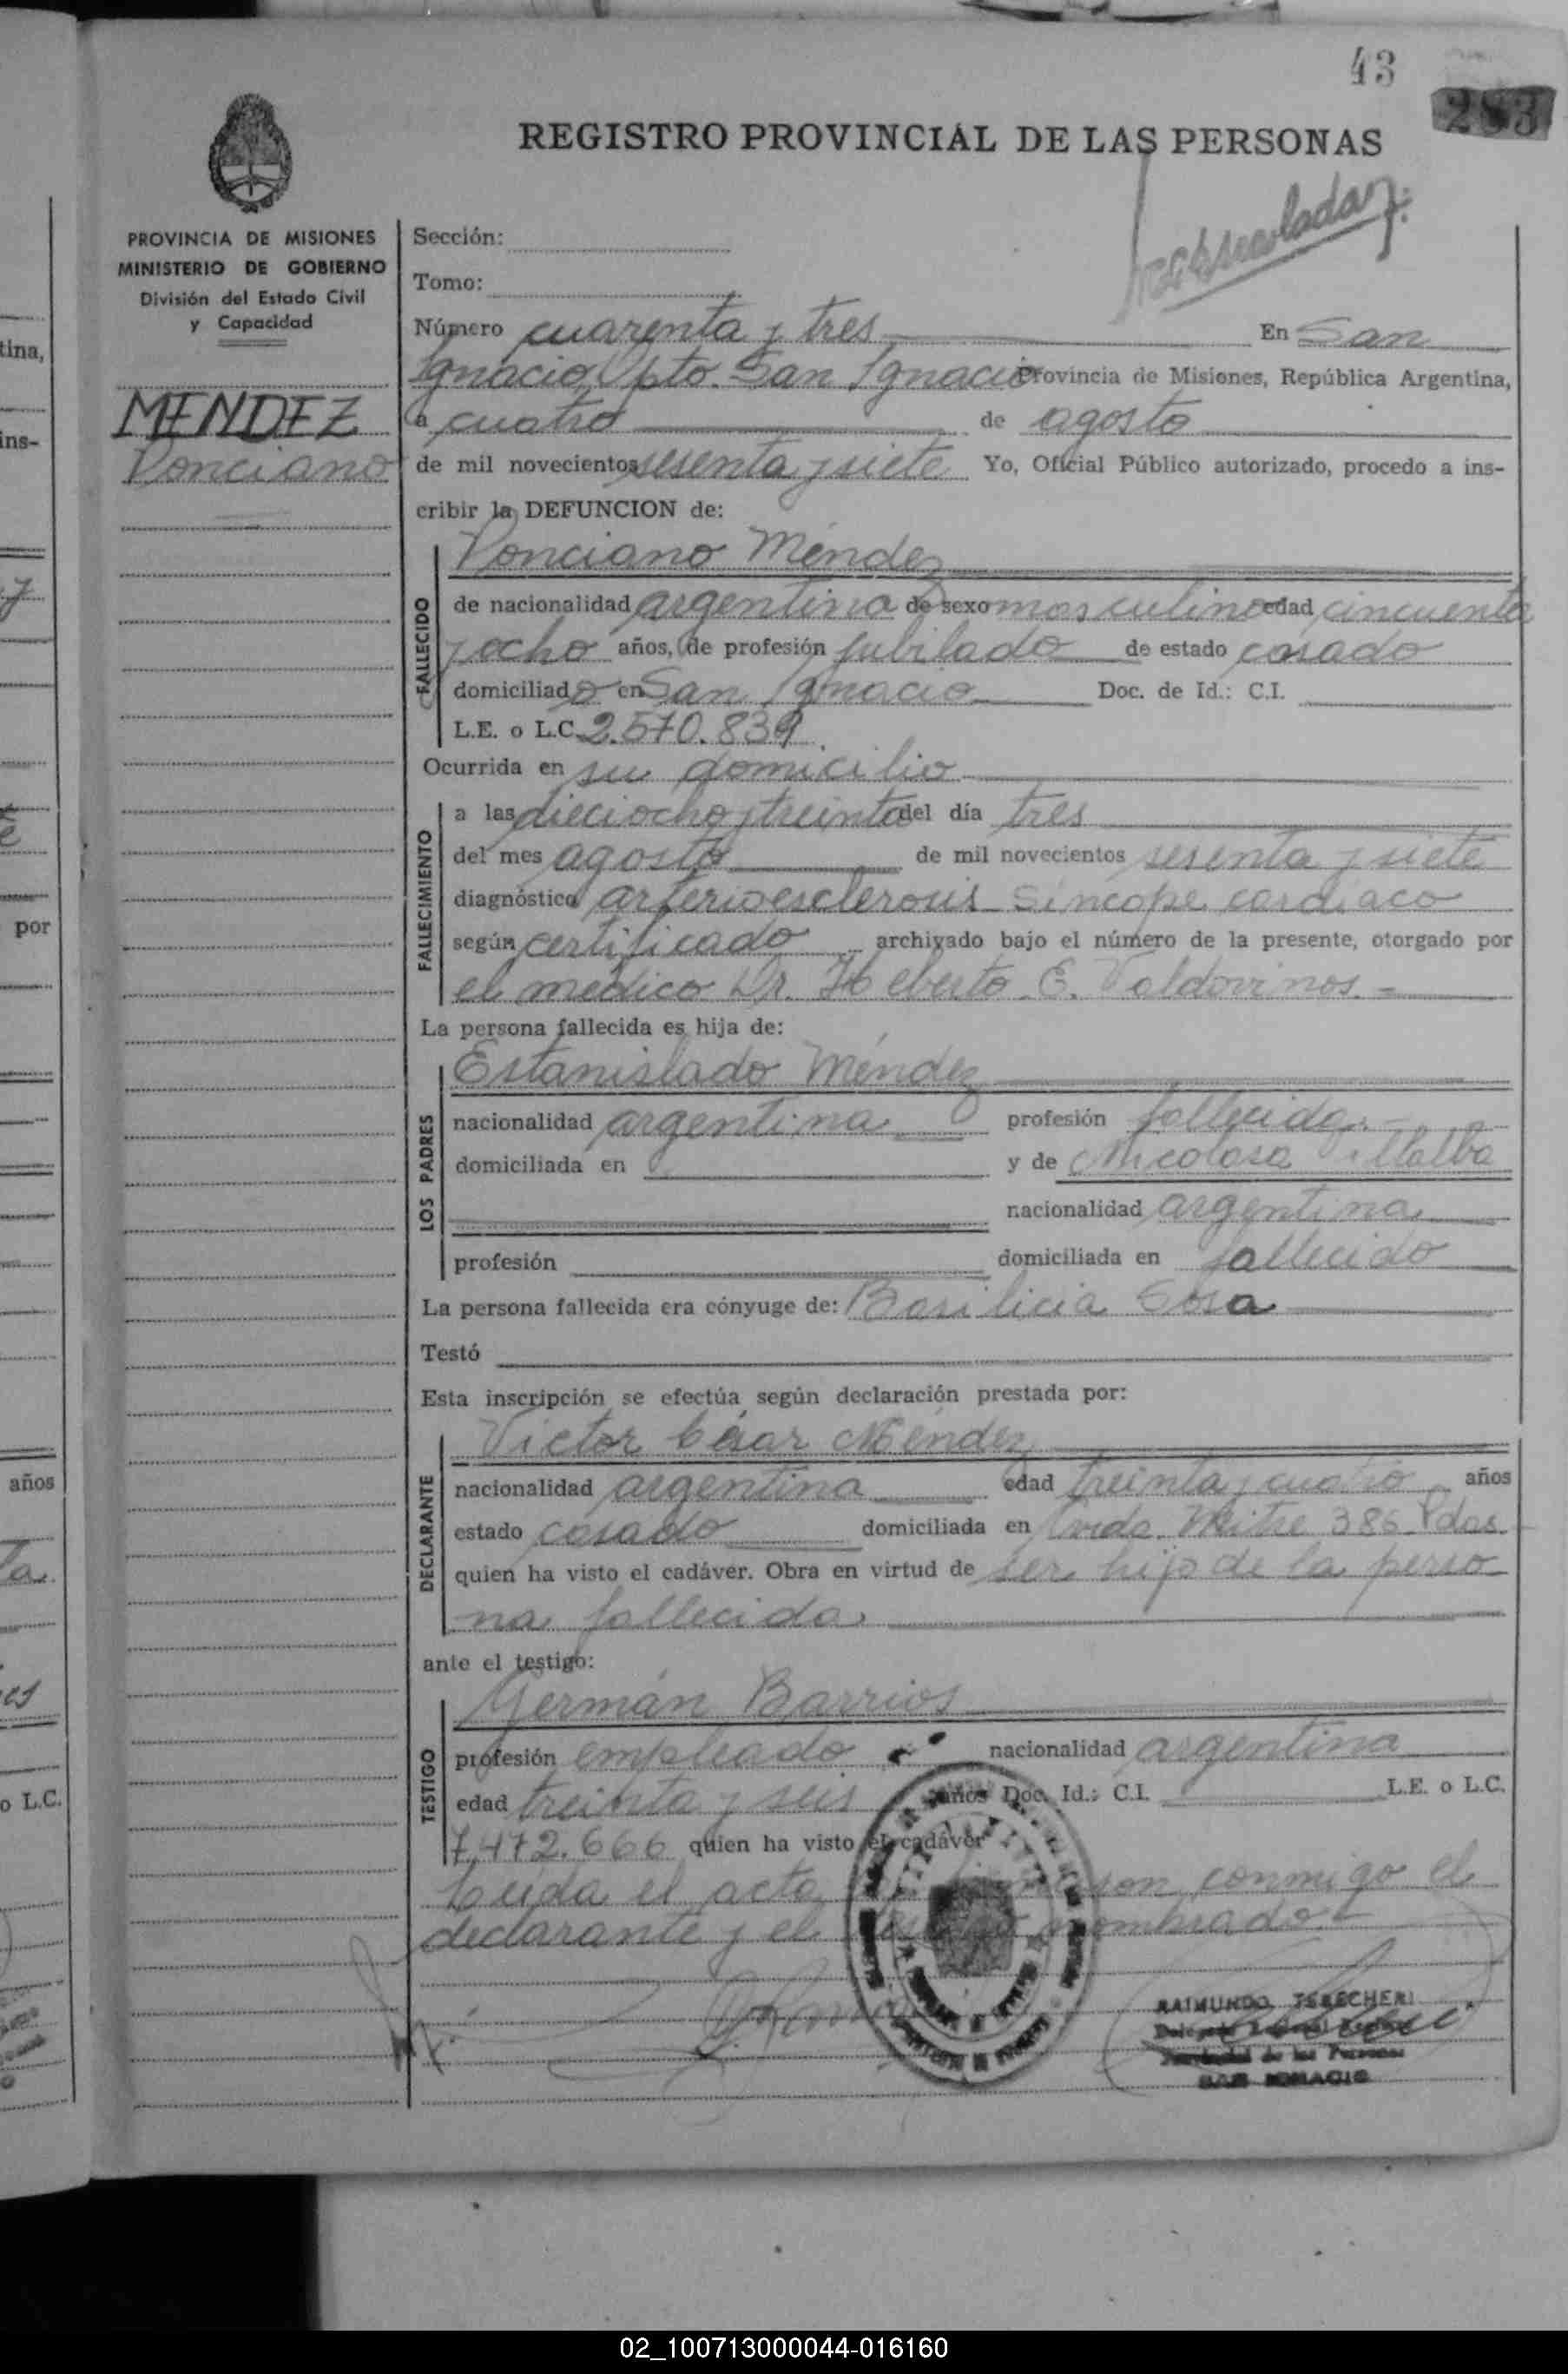 43
283
REGISTRO PROVINCIAL DE LAS PERSONAS
PROVINCIA DE MISIONES
MINISTERIO DE GOBIERNO
División del Estado Civil
y Capacidad
MENDEZ
Ponciano
Sección:
Tomo:
Número cuarenta y tres En San
Ignacio, Dpto. San Ignacio Provincia de Misiones, República Argentina,
a cuatro de agosto
de mil novecientos sesenta y siete Yo, Oficial Público autorizado, procedo a ins-
cribir la DEFUNCION de:
FALLECIDO
Ponciano Méndez
de nacionalidad argentina de sexo masculino edad cincuenta
y ocho años, de profesión jubilado de estado casado
domiciliado en San Ignacio Doc. de Id.: C.I.
L.E. o L.C. 2.570.839
Ocurrida en su domicilio
FALLECIMIENTO
a las dieciocho y treinta del día tres
del mes agosto de mil novecientos sesenta y siete
diagnóstico arterioesclerosis - Síncope cardíaco
según certificado archivado bajo el número de la presente, otorgado por
el médico Dr. Heberto E. Valdovinos. -
La persona fallecida es hija de:
LOS PADRES
Estanislado Méndez
nacionalidad argentina profesión fallecido.-
domiciliada en y de Nicolasa Villalba
nacionalidad argentina
profesión domiciliada en fallecido
La persona fallecida era cónyuge de: Basilicia Sosa
Testó
Esta inscripción se efectúa según declaración prestada por:
DECLARANTE
Victor César Méndez
nacionalidad argentina edad treinta y cuatro años
estado casado domiciliada en Avda. Mitre 386 Pdas
quien ha visto el cadáver. Obra en virtud de ser hijo de la perso-
na fallecida
ante el testigo:
TESTIGO
Germán Barrios
profesión empleado nacionalidad argentina
edad treinta y seis años Doc. Id.: C.I. L.E. o L.C.
7.472.666 quien ha visto el cadáver
Leida el acta conmigo el
declarante y el testigo nombrado.-
RAIMUNDO
SAN IGNACIO
tina,
ins-
por
años
o L.C.
02_100713000044-016160